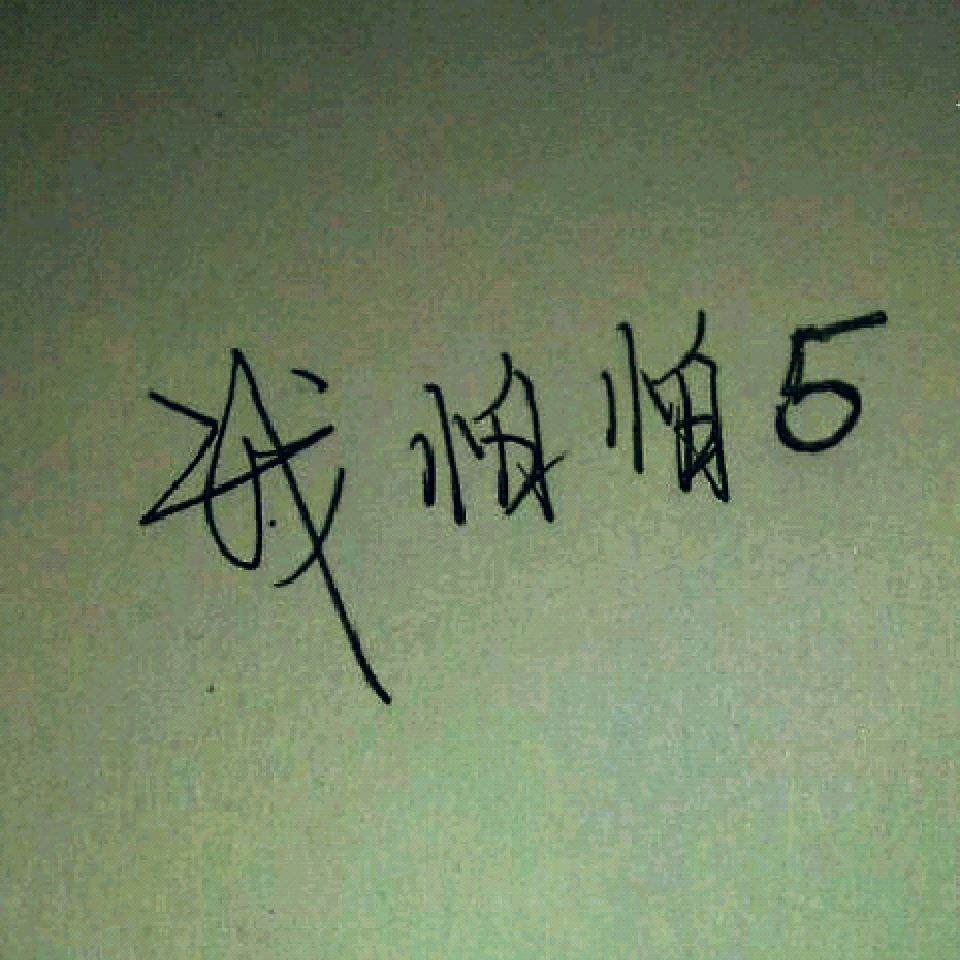 我怕怕5